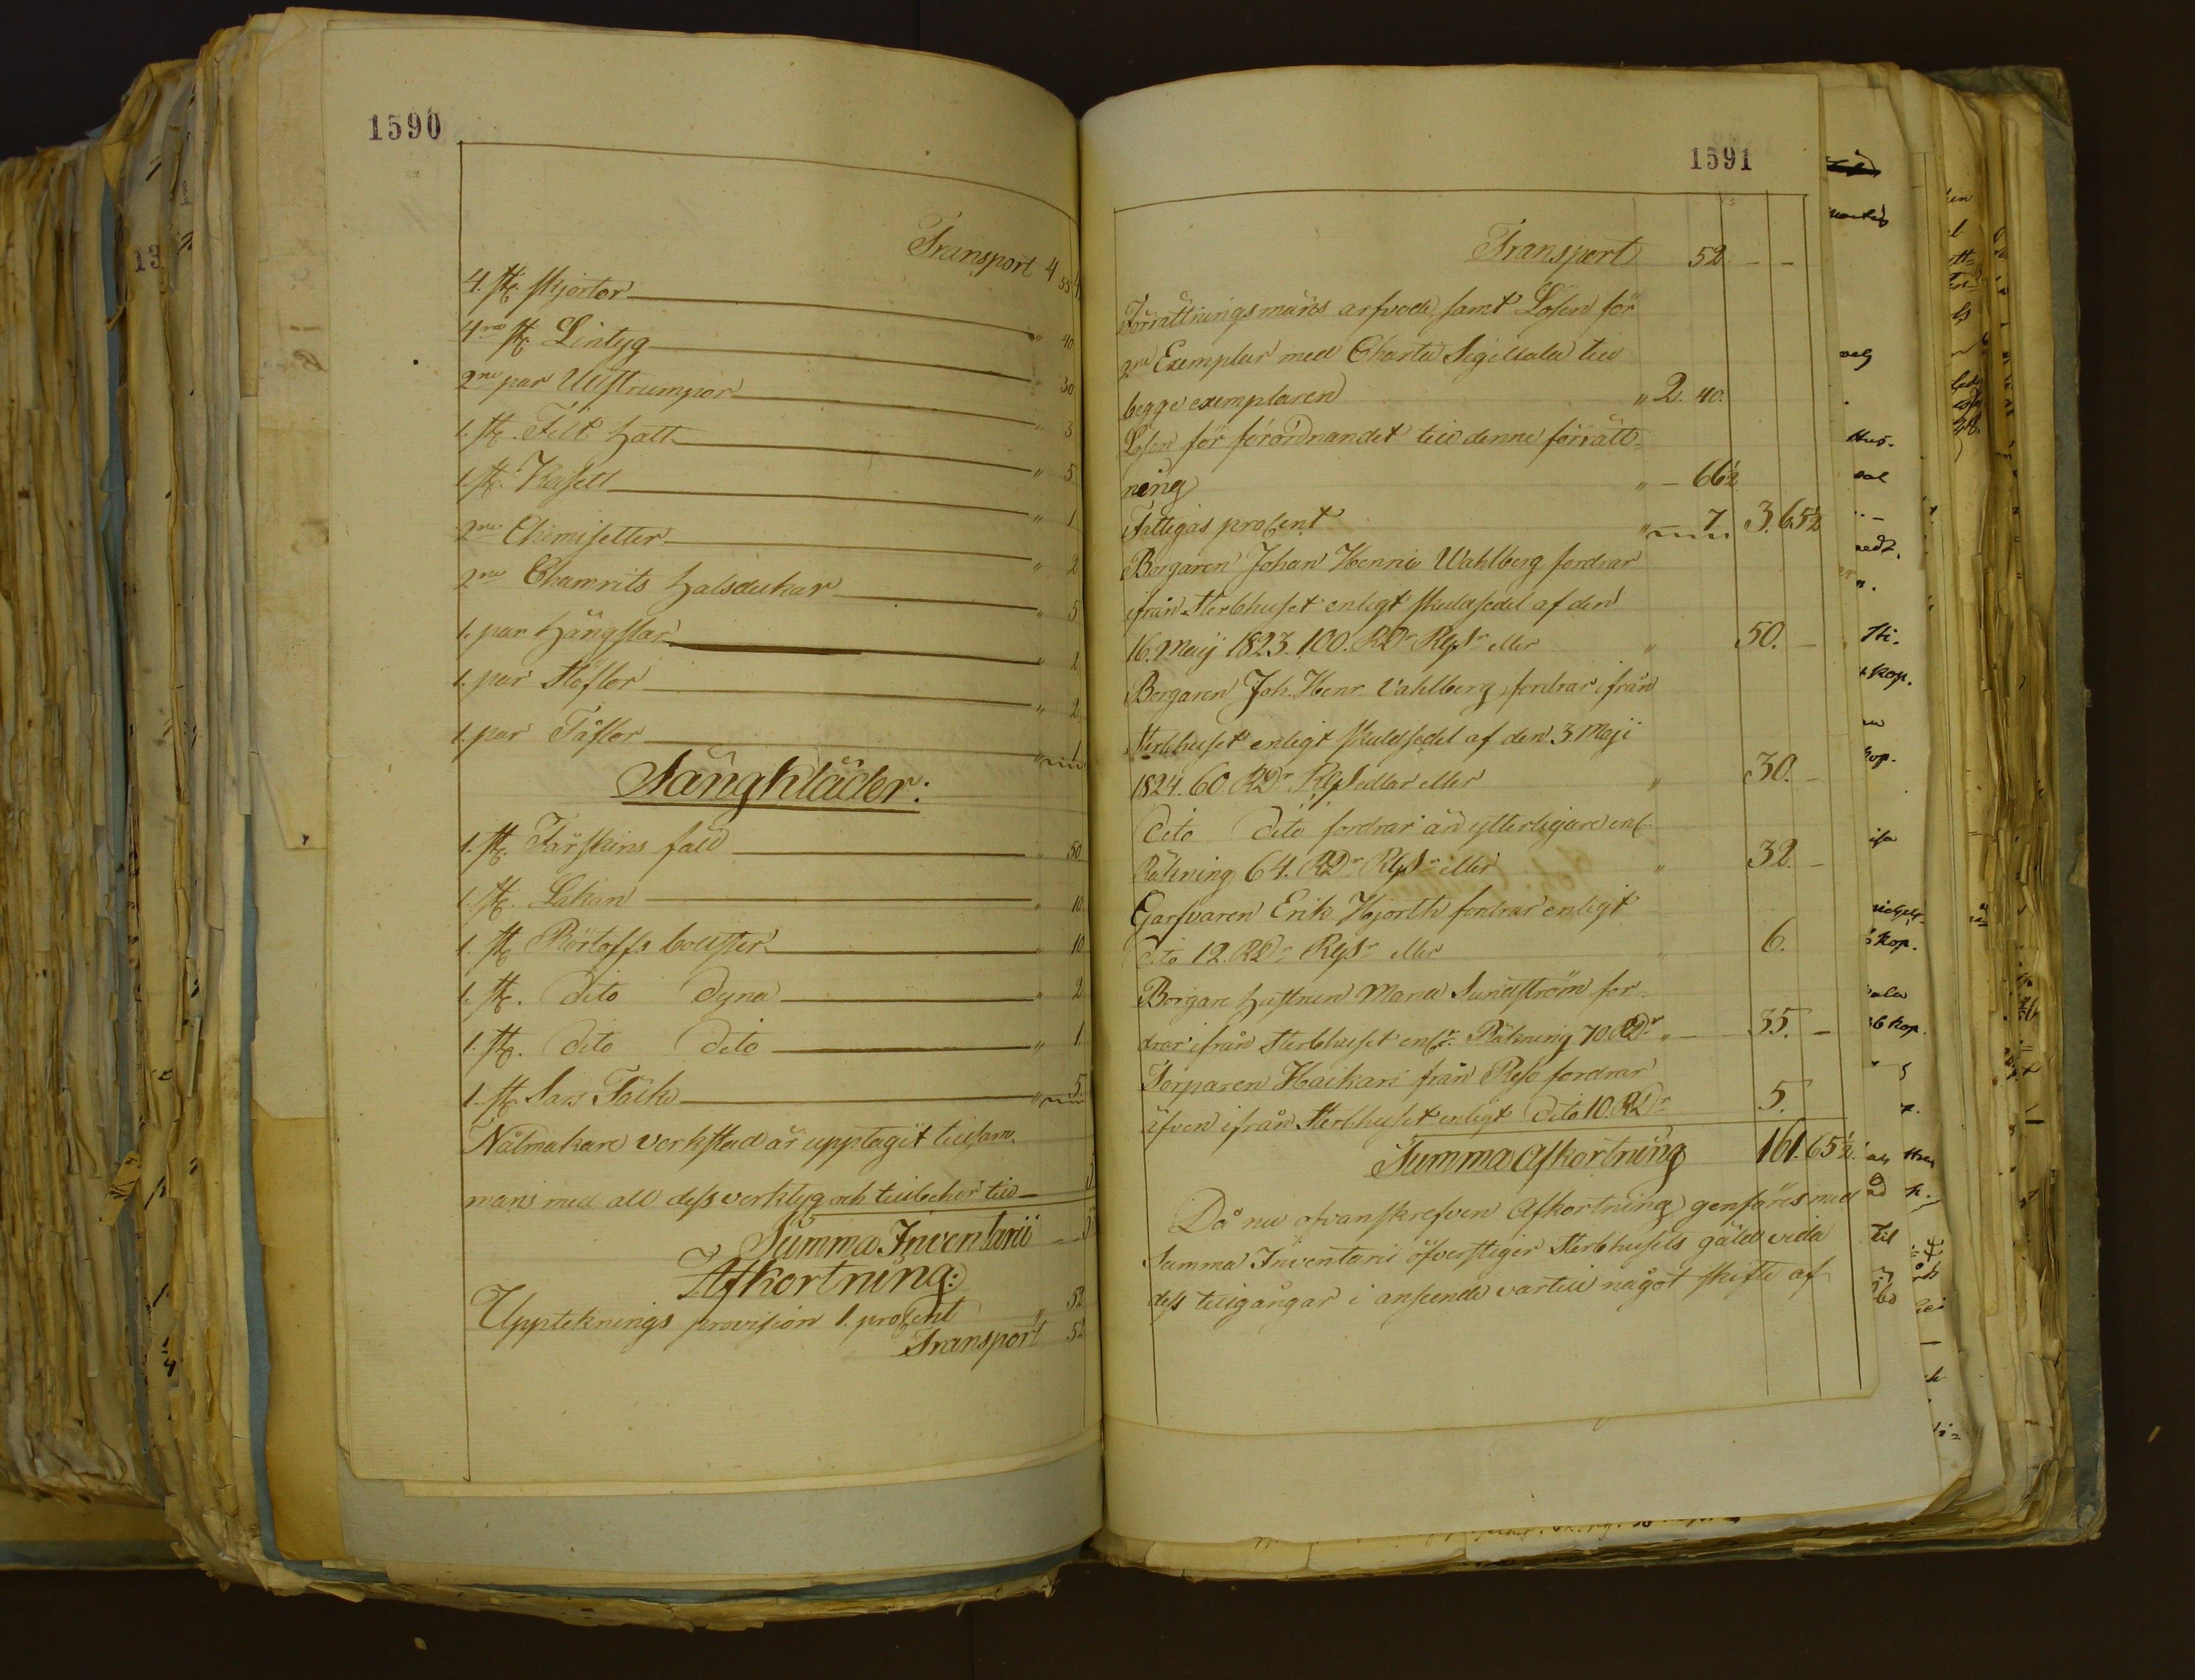 1590
Transport 4 55
4. st. Skjortor " 40
4ra st. Lintyg " 30
2ne par Ullstrumpor " 3
1. st. Filt hatt " 5
1. st. Kasett " 1
2ne Chemisetter " 2
2ne Chamrits halsdukar " 5
1. par hängslar " 2
1. par Stöflor " 2
1. par Tåflor " 1
Sängkläder:
1. st. Fårskins fäll " 50
1. st. Lakan " 10
1. st. Rörtofs bolster " 10
1. st. dito dyna " 2
1. st. dito dito " 1
1. st. Sars Täcke " 5
Nålmakare verkstad är upptagit tillsam-
mans med all dess verktyg och tillbehör till
Summa Inventarii
Afkortning:
Uppteknings provision 1. procent " 52
Transport 52
1591
Transport 52 - -
Förrättningsmäns arfvode samt Lösen för
2ne Exemplar med Charta Sigillata till
begge exemplaren " 2. 40.
Lösen för förordnandet till denne förrätt-
ning " - 66½
Fattigas procent " 7 3. 65½
Borgaren Johan Henric Wahlberg fordrar
ifrån Sterbhuset enligt skuldsedel af den
16. Maij 1823. 100. RDr RgSr eller " 50. -
Borgaren Joh. Henr. Vahlberg fordrar ifrån
Sterbhuset enligt skuldsedel af den 3 Maji
1824. 60 RDr RgSedlar eller " 30. -
dito dito fordrar än ytterligare enl.
Räkning 64. RDr RgSr eller " 32. -
Garfvaren Erik Hjorth fordrar enligt
dito 12. RDr RgSr eller " 6.
Borgare hustrun Maria Sundström for-
drar ifrån Sterbhuset enl. Räkning 70. RDr " - 35. -
Torparen Haikari från Reso fordrar
äfven ifrån Sterbhuset enligt dito 10. RDr 5.
Summa Afkortning 161. 65½.
Då nu ofvanskrefven Afkortning genföres med
Summa Inventarii öfverstiger Sterbhusets gäld vida
dess tillgångar i anseende vartill något skifte af